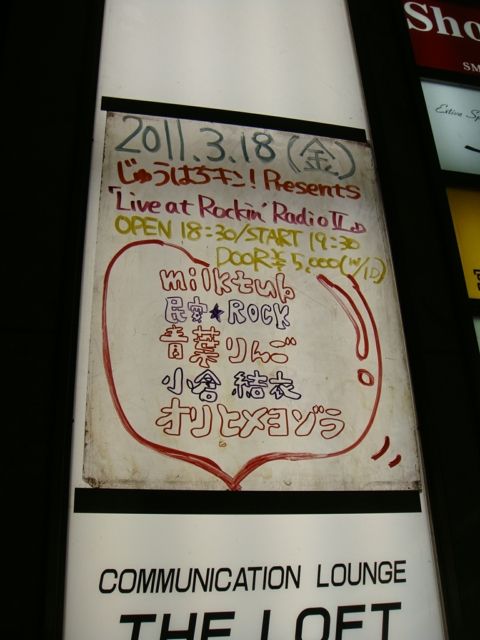 Sho
SM
2011.3.18(金)
じゅうはちキン!Presents
「Live at Rockin' Radio Ⅱ」
OPEN 18:30/START 19:30
DOOR ¥5,000(w/1D)
milktub
民安★ROCK
青葉りんご
小倉 結衣
オリヒメヨゾラ
COMMUNICATION LOUNGE
THE LOFT